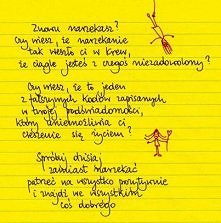 Znowu narzekasz?
Czy wiesz, że narzekanie
tak weszło ci w krew,
że ciągle jesteś z czegoś niezadowolony?
Czy wiesz, że to jeden
z fałszywych kodów zapisanych
w twojej podświadomości,
który uniemożliwia ci
cieszenie się życiem?
Spróbuj dzisiaj
zamiast narzekać
patrzeć na wszystko pozytywnie
i znajdź we wszystkim
coś dobrego